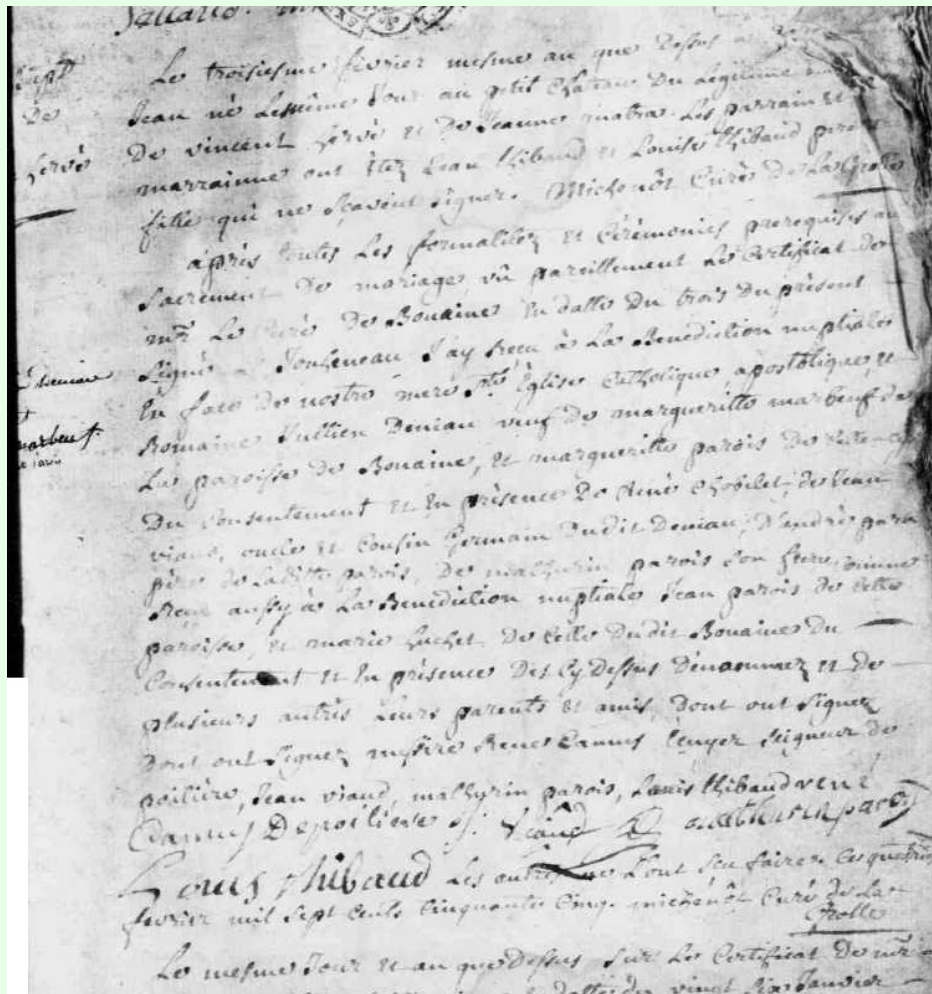 Le troisiesme fevrier mesme an que Dessus a
Jean né Lesmême Jour au petit Chateau Du Legitime
De vincent hervé et De Jeanne matra. Les parrain et
hervé
marrainne ont étez Jean thibaud et Louise thibaud
fille qui ne sçavent signer. Michenôt Curé De La Grolle
après toutes Les formalitez et Cérémonies prerequises au
Sacrement De mariage, vû pareillement Le Certificat de
mr Le Curé De Bouaine En datte Du trois Du présent
Signé J'ay Receu à La Benediction nuptiale
Deniau
En face De nostre mere Ste Église Catholique apostolique, et
Romaine Jullien Deniau veuf De margueritte marbeuf de
marbeuf.
La paroisse de Bouaine, et margueritte parois De Cette
Du Consentement et En présence De Chobelet, de Jean
viaud, oncle et Cousin Germain Dudit Deniau, D'andré
père de Laditte parois, De mathurin parois Son frere, comme
Reçu aussy à La Benediction nuptiale Jean parois de Cette
paroisse, et marie huchet De Celle Dudit Bouaine Du
Consentement et En présence Des Cy Dessus Dénommez et de
plusieurs autres Leurs parents et amis, Dont ont Signez
Dont ont Signez messire Rene Camus Ecuyer Seigneur de
poiliere, Jean viaud, mathurin parois, Louis thibaud
Camus Depoiliere J. viaud mathurin parois
Louis thibaud Les autres ne L'ont Seu faire. Ce
fevrier mil Sept Cents Cinquante Cinq. michenôt Curé De La
Grolle
Le mesme Jour et an que Dessus Sur Le Certificat De mr
vingt Six Janvier